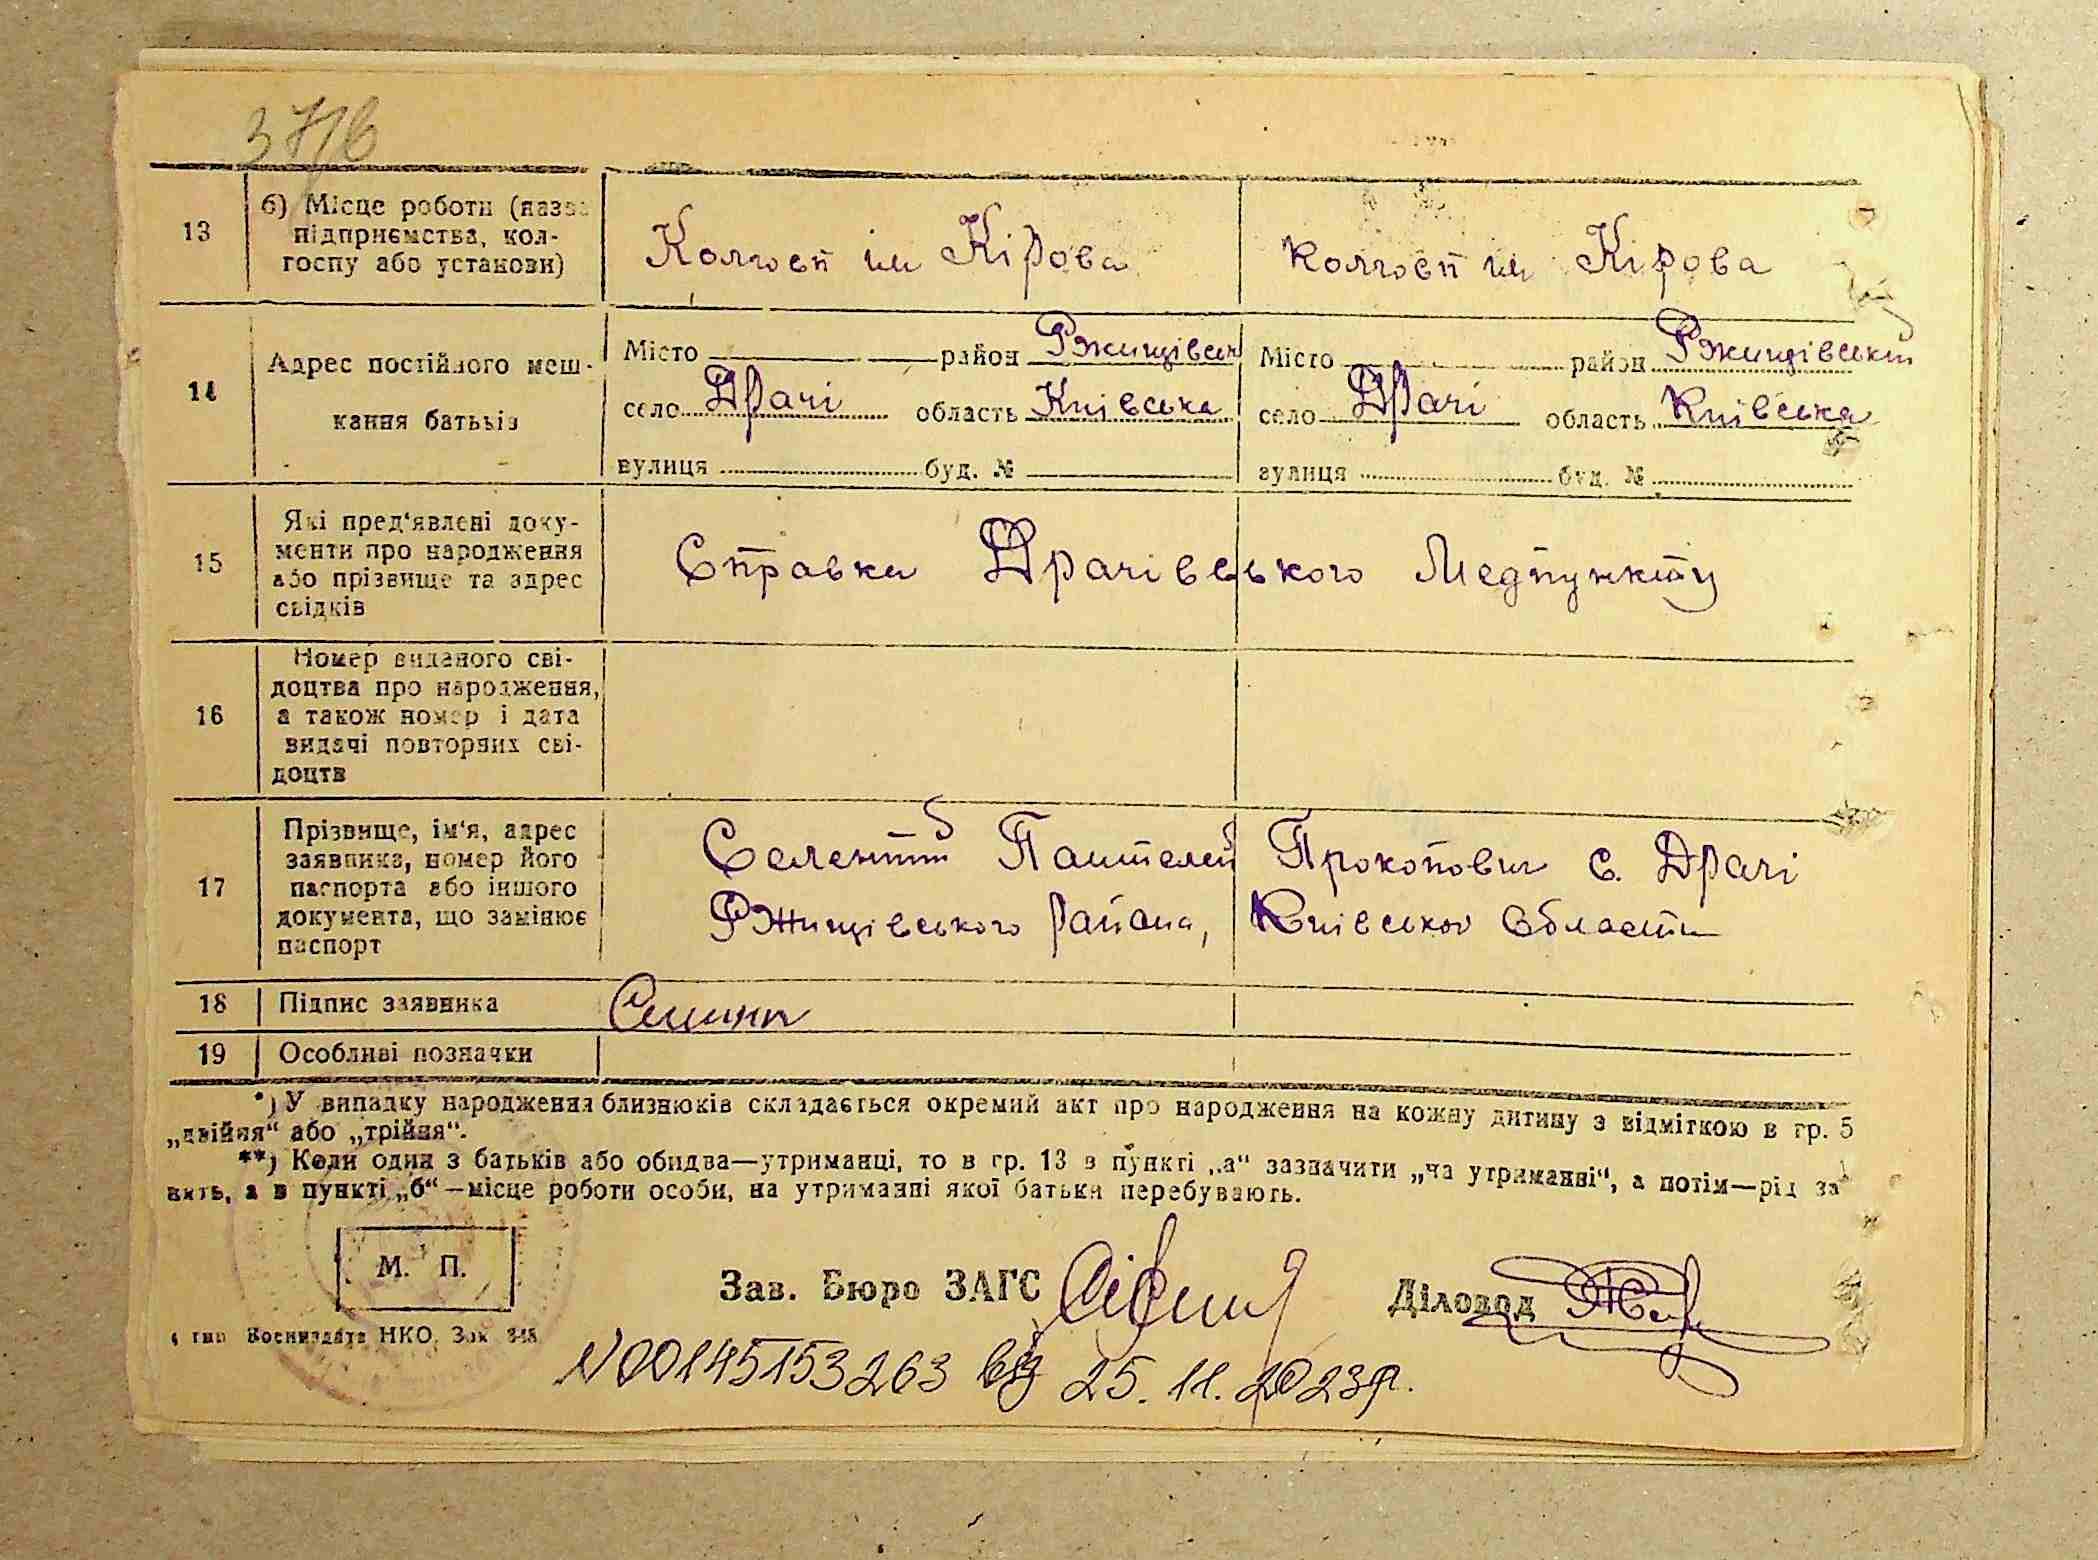 37/в
13
б) Місце роботи (назва
підприємства, кол-
госпу або установи)
Колгосп ім Кірова
Колгосп ім Кірова
14
Адрес постійного меш-
кання батьків
Місто район Ржищівськ
село Драчі область Київська
вулиця буд. №
Місто район Ржищівський
село Драчі область Київська
вулиця буд. №
15
Які пред'явлені доку-
менти про народження
або прізвище та адрес
свідків
Справка Драчівського Медпункту
16
Номер виданого сві-
доцтва про народження,
а також номер і дата
видачі повторних сві-
доцтв
17
Прізвище, ім'я, адрес
заявника, номер його
паспорта або іншого
документа, що замінює
паспорт
Пантелей Прокопович с. Драчі
Ржищівського района, Київської області
18 Підпис заявника
19 Особливі позначки
*) У випадку народження близнюків складається окремий акт про народження на кожну дитину з відміткою в гр. 5
„двійня“ або „трійня“.
**) Коли один з батьків або обидва—утриманці, то в гр. 13 в пункті „а“ зазначити „на утриманні“, а потім—рід за
нять, а в пункті „б“—місце роботи особи, на утриманні якої батьки перебувають.
М. П.
Зав. Бюро ЗАГС
Діловод
тип Воениздата НКО. Зак
N00145153263 від 25.11.2023р.